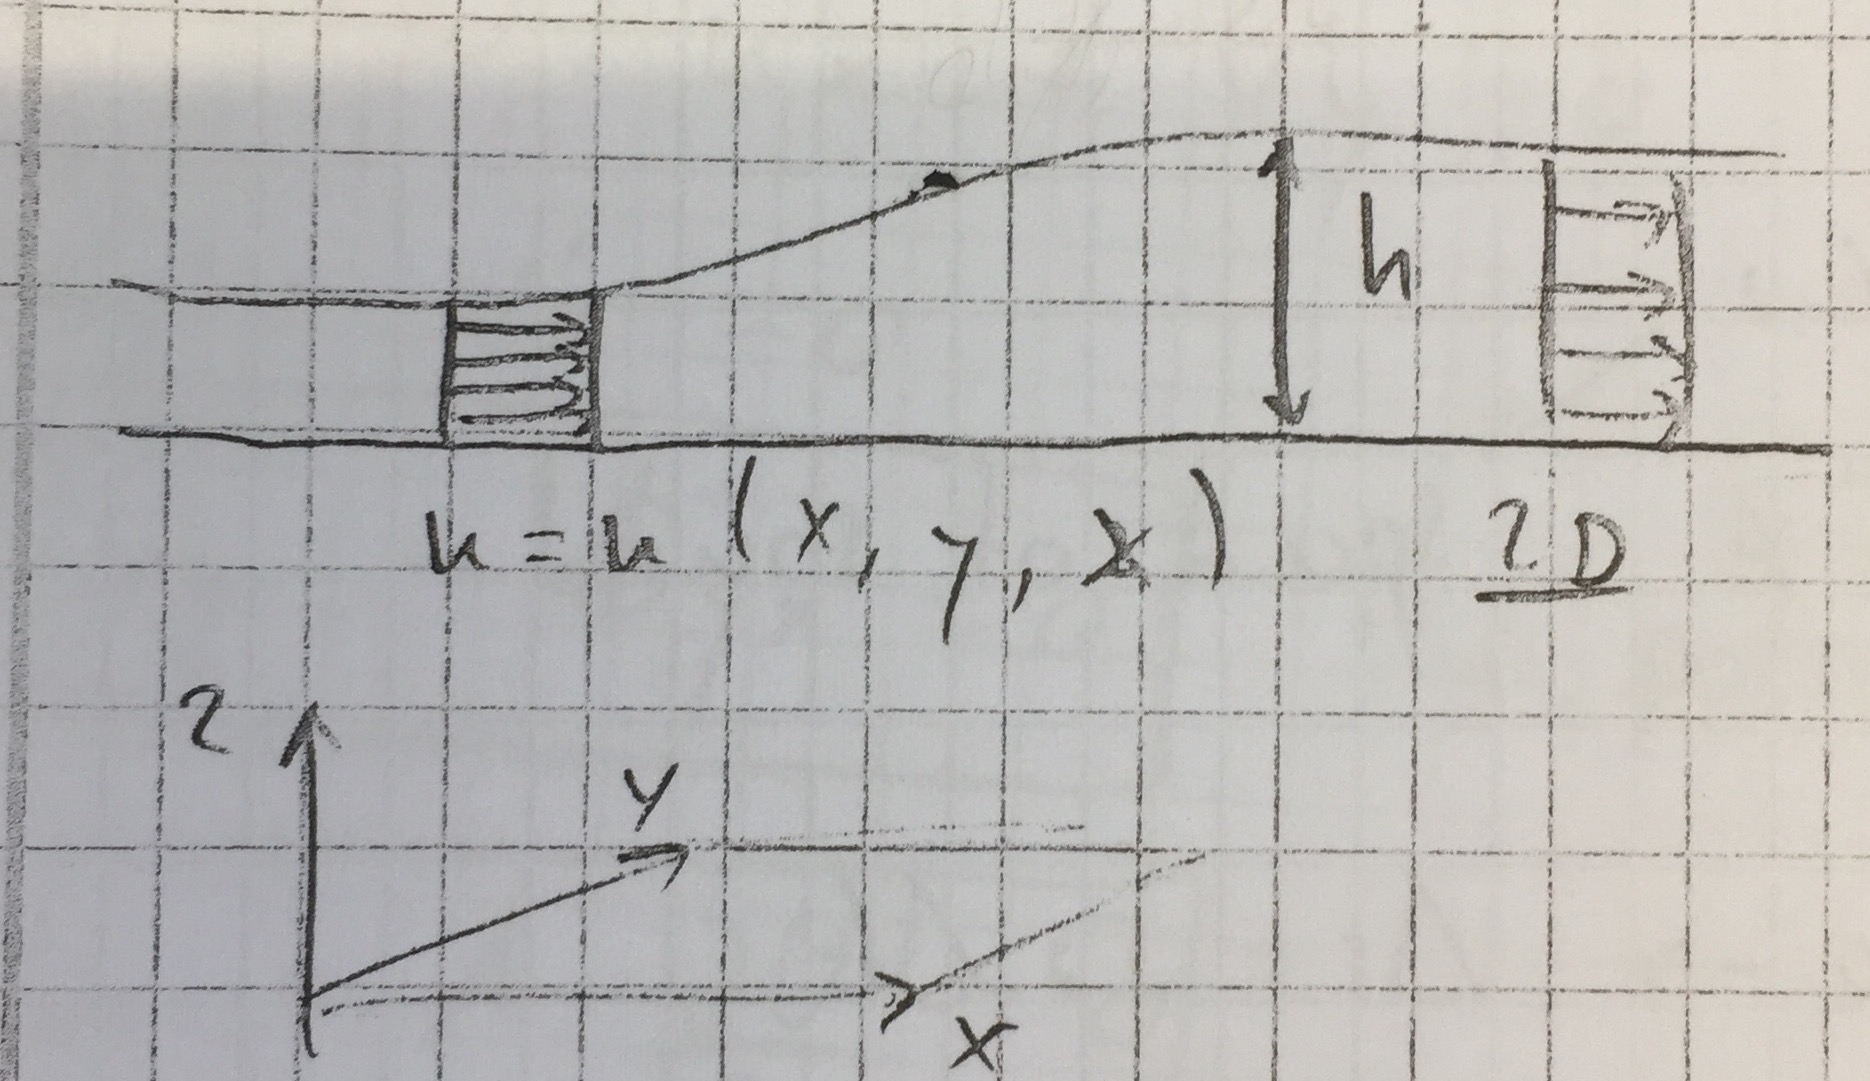 h
u = u (x, y, z) 2D
z
y
x